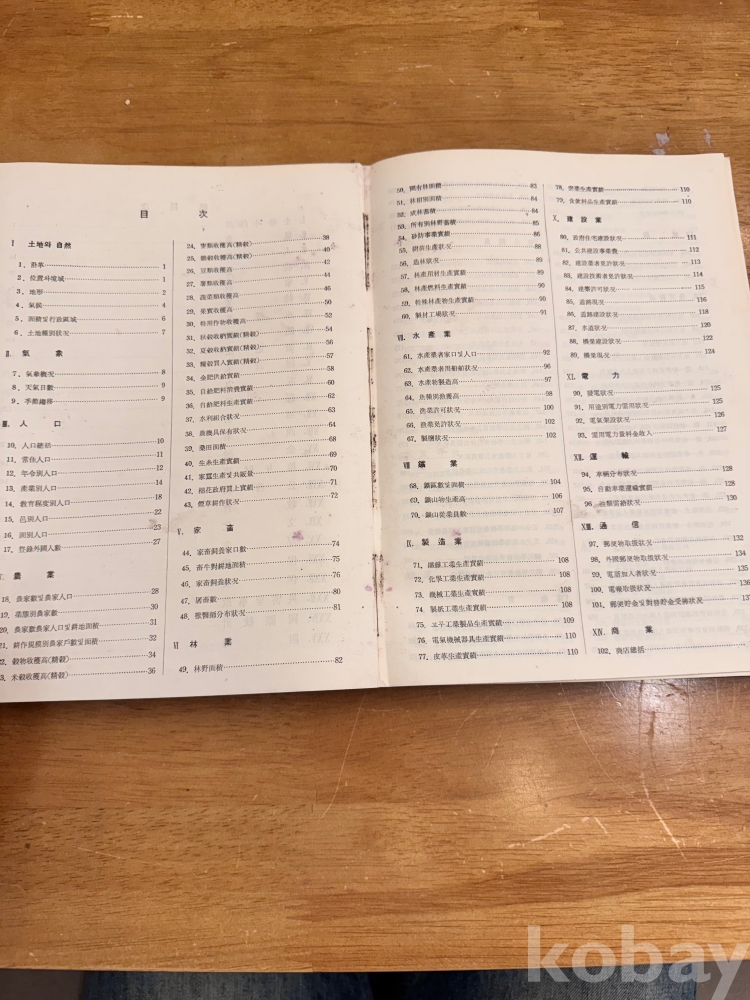 目 次
Ⅰ 土地와 自然
1. 沿革 1
2. 位置와境域 1
3. 地形 2
4. 氣候 4
5. 面積및行政區域 6
6. 土地種別狀況 7
Ⅱ. 氣 象
7. 氣象概況 8
8. 天氣日數 9
9. 季節趨移 9
Ⅲ. 人 口
10. 人口總括 10
11. 常住人口 11
12. 年令別人口 12
13. 產業別人口 14
14. 教育程度別人口 18
15. 邑別人口 22
16. 面別人口 23
17. 登錄外國人數 27
農 業
18. 農家數및農家人口 28
19. 業態別農家數 30
20. 農家數農家人口및耕地面積 31
21. 耕作規模別農家戶數및面積 32
22. 穀物收穫高(精穀) 34
3. 米穀收穫高(精穀) 36
24. 麥類收穫高(精穀) 38
25. 雜穀收穫高(精穀) 40
26. 豆類收穫高 42
27. 薯類收穫高 44
28. 蔬菜類收穫高 46
29. 果實收穫高 50
30. 特用作物收穫高 52
31. 秋穀收納實績(精穀) 54
32. 夏穀收納實績(精穀) 56
33. 糧穀買入實績(精穀) 57
34. 金肥供給實績 58
35. 自給肥料消費實績 60
36. 自給肥料生產實績 62
37. 水利組合狀況 63
38. 農機具保有狀況 64
39. 桑田面積 68
40. 生糸生產實績 69
41. 家蠶生產및共販量 70
42. 棉花政府買上實績 71
43. 煙草耕作狀況 72
Ⅴ. 家 畜
44. 家畜飼養家口數 74
45. 畜牛對耕地面積 75
46. 家畜飼養狀況 76
47. 屠畜數 80
48. 種牡畜分布狀況 81
Ⅵ 林 業
49. 林野面積 82
50. 國有林面積 83
51. 林相別面積 84
52. 成林蓄積 84
53. 所有別林野蓄積 85
54. 砂防事業實績 86
55. 樹苗生產狀況 88
56. 造林狀況 89
57. 林產用材生產實績 89
58. 林產燃料生產實績 89
59. 特殊林產物生產實績 90
60. 製材工場狀況 91
Ⅶ. 水 產 業
61. 水產業者家口및人口 92
62. 水產業者用船舶狀況 96
63. 水產物製造高 97
64. 魚種別漁獲高 98
65. 漁業許可狀況 100
66. 漁業免許狀況 102
67. 製鹽狀況 102
Ⅷ 鑛 業
68. 鑛區數및面積 104
69. 鑛山物生產高 106
70. 鑛山從業員數 107
Ⅸ. 製 造 業
71. 纖維工業生產實績 108
72. 化學工業生產實績 108
73. 機械工業生產實績 108
74. 製紙工業生產實績 108
75. 고무工業製品生產實績 109
76. 電氣機械器具生產實績 110
77. 皮革生產實績 110
78. 窯業生產實績 110
79. 食飮料品生產實績 110
Ⅹ. 建 設 業
80. 政府住宅建設狀況 111
81. 公共建設事業費 112
82. 建設業者免許狀況 113
83. 建設技術者免許狀況 114
84. 建築許可狀況 115
85. 道路現況 116
86. 道路建設狀況 118
87. 水道狀況 120
88. 橋梁建設狀況 122
89. 橋梁現況 124
Ⅺ. 電 力
90. 發電狀況 125
91. 用途別電力需用狀況 125
92. 電氣架設狀況 126
93. 需用電力量料金收入 127
Ⅻ. 運 輸
94. 車輛分布狀況 128
95. 自動車運輸實績 128
96. 油類需給狀況 130
XⅢ. 通 信
97. 郵便物取扱狀況 132
98. 外國郵便物取扱狀況 134
99. 電話加入者狀況 135
100. 電報取扱狀況 136
101. 郵便貯金및對替貯金受拂狀況 137
XⅣ. 商 業
102. 商店總括
kobay